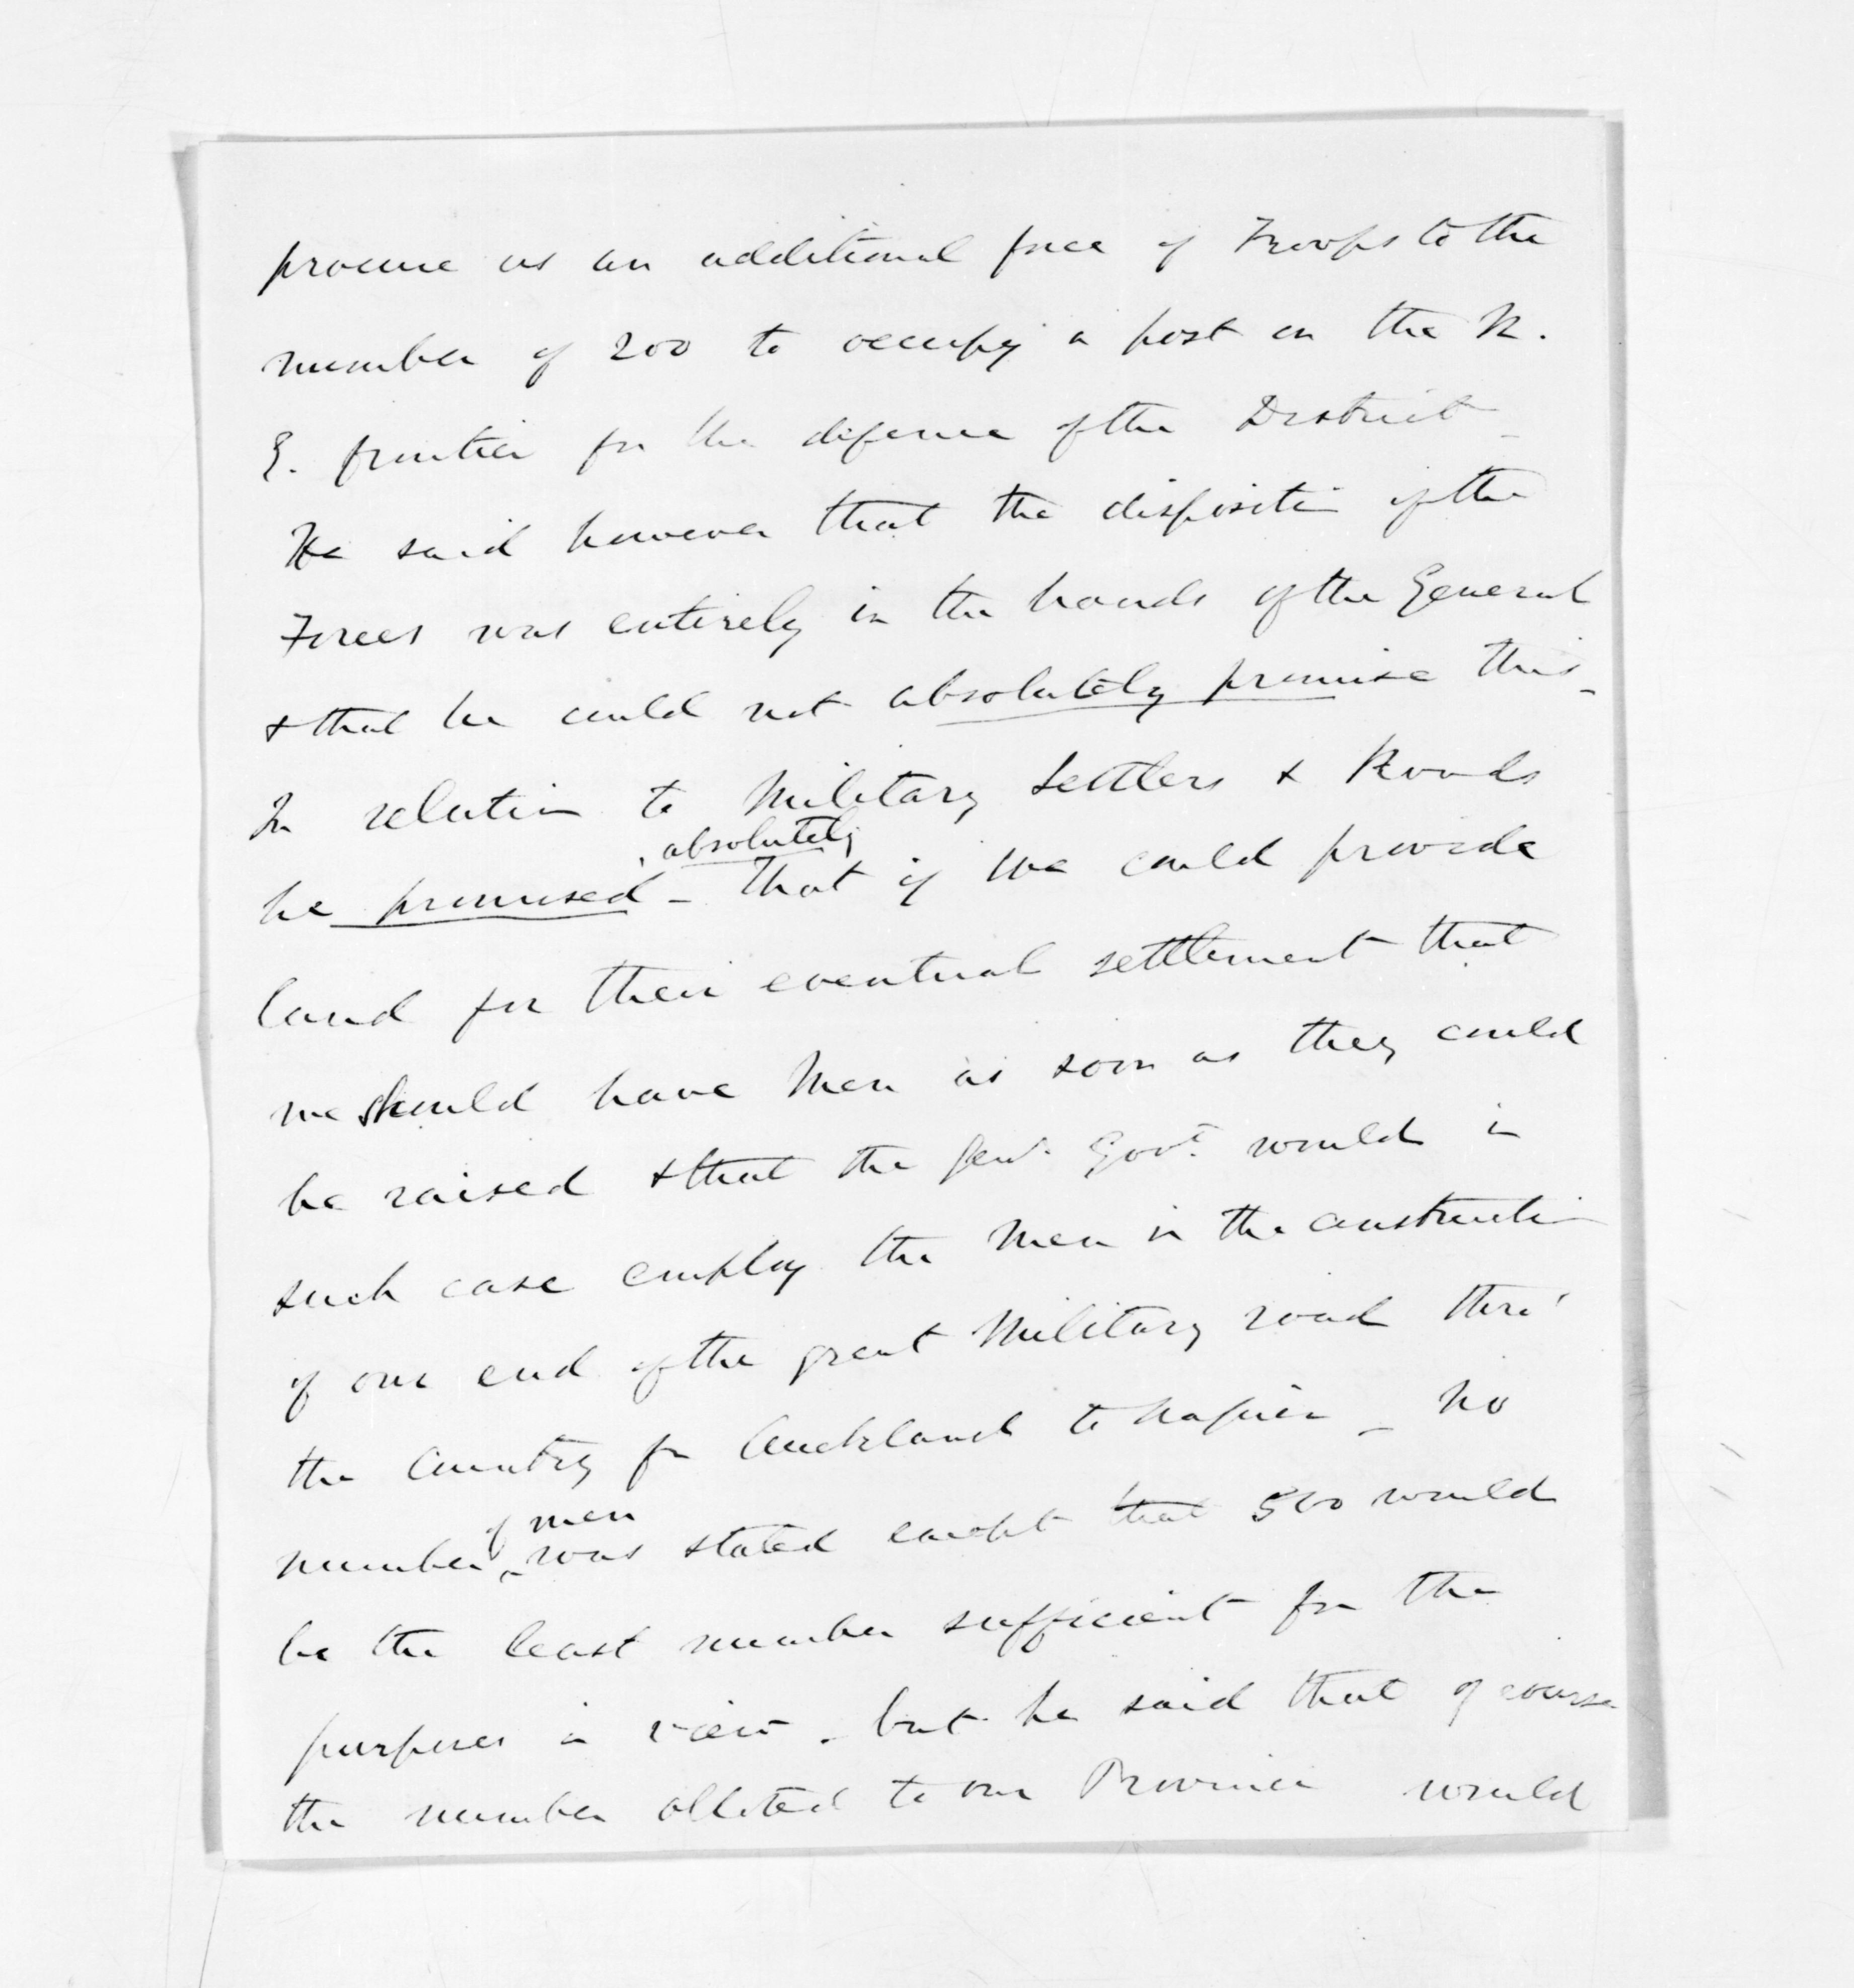 procure us an additional force of Troops to the
number of 200 to occupy a post on the N.
E. frontier for the defence of the District _
He said however that the disposition of the
Forces was entirely in the hands of the General
& that he could not absolutely promise this _
In relation to Military Settlers & Roads
absolutely
he promised - that if we could provide
land for their eventual settlement that
we should have Men as soon as they could
be raised & that the Genl. Govt. would in
such case employ the Men in the construction
of our end of the great Military road thro'
the Country fr Auckland to Napier _ No
of men
number was stated except that 500 would
be the least number sufficient for the
purposes in view . but he said that of course
the number allotted to our Province would